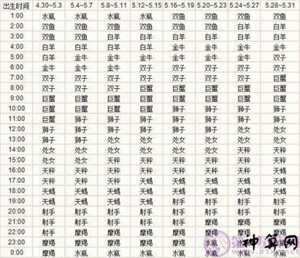 出生时间 4.30~5.3 5.4~5.7 5.8~5.11 5.12~5.15 5.16~5.19 5.20~5.23 5.24~5.27 5.28~5.31
1:00 水瓶 水瓶 水瓶 水瓶 双鱼 双鱼 双鱼 双鱼
2:00 双鱼 双鱼 双鱼 双鱼
3:00 双鱼 双鱼 白羊 白羊 白羊 白羊
4:00 白羊 白羊 白羊 白羊 金牛 金牛 金牛 金牛
5:00 白羊 金牛 金牛 金牛 金牛
6:00 金牛 金牛 双子 双子 双子 双子
7:00 双子 双子 双子 双子 双子 双子 巨蟹
8:00 双子 双子 双子 巨蟹 巨蟹 巨蟹 巨蟹 巨蟹
9:00 巨蟹 巨蟹 巨蟹 巨蟹 巨蟹 巨蟹 巨蟹
10:00 巨蟹 巨蟹 巨蟹 獅子 獅子 獅子 獅子
11:00 獅子 獅子 獅子 獅子 獅子 獅子 獅子 獅子
12:00 獅子 獅子 獅子 獅子 獅子 处女 处女
13:00 獅子 处女 处女 处女 处女 处女 处女
14:00 处女 处女 处女 处女 处女 处女
15:00 处女 处女 处女 天秤 天秤 天秤 天秤 天秤
16:00 天秤 天秤 天秤 天秤 天秤 天秤 天秤 天秤
17:00 天秤 天秤 天秤 天秤 天蝎 天蝎 天蝎
18:00 天蝎 天蝎 天蝎 天蝎 天蝎 天蝎 天蝎
19:00 天蝎 天蝎 天蝎 天蝎 天蝎
20:00 射手 射手 射手 射手 射手
21:00 射手 射手 射手 射手 射手 射手
22:00 射手 射手 射手 摩羯 摩羯 摩羯
23:00 摩羯 摩羯 摩羯 摩羯 摩羯
0:00 摩羯 摩羯 水瓶 水瓶 水瓶
神算网